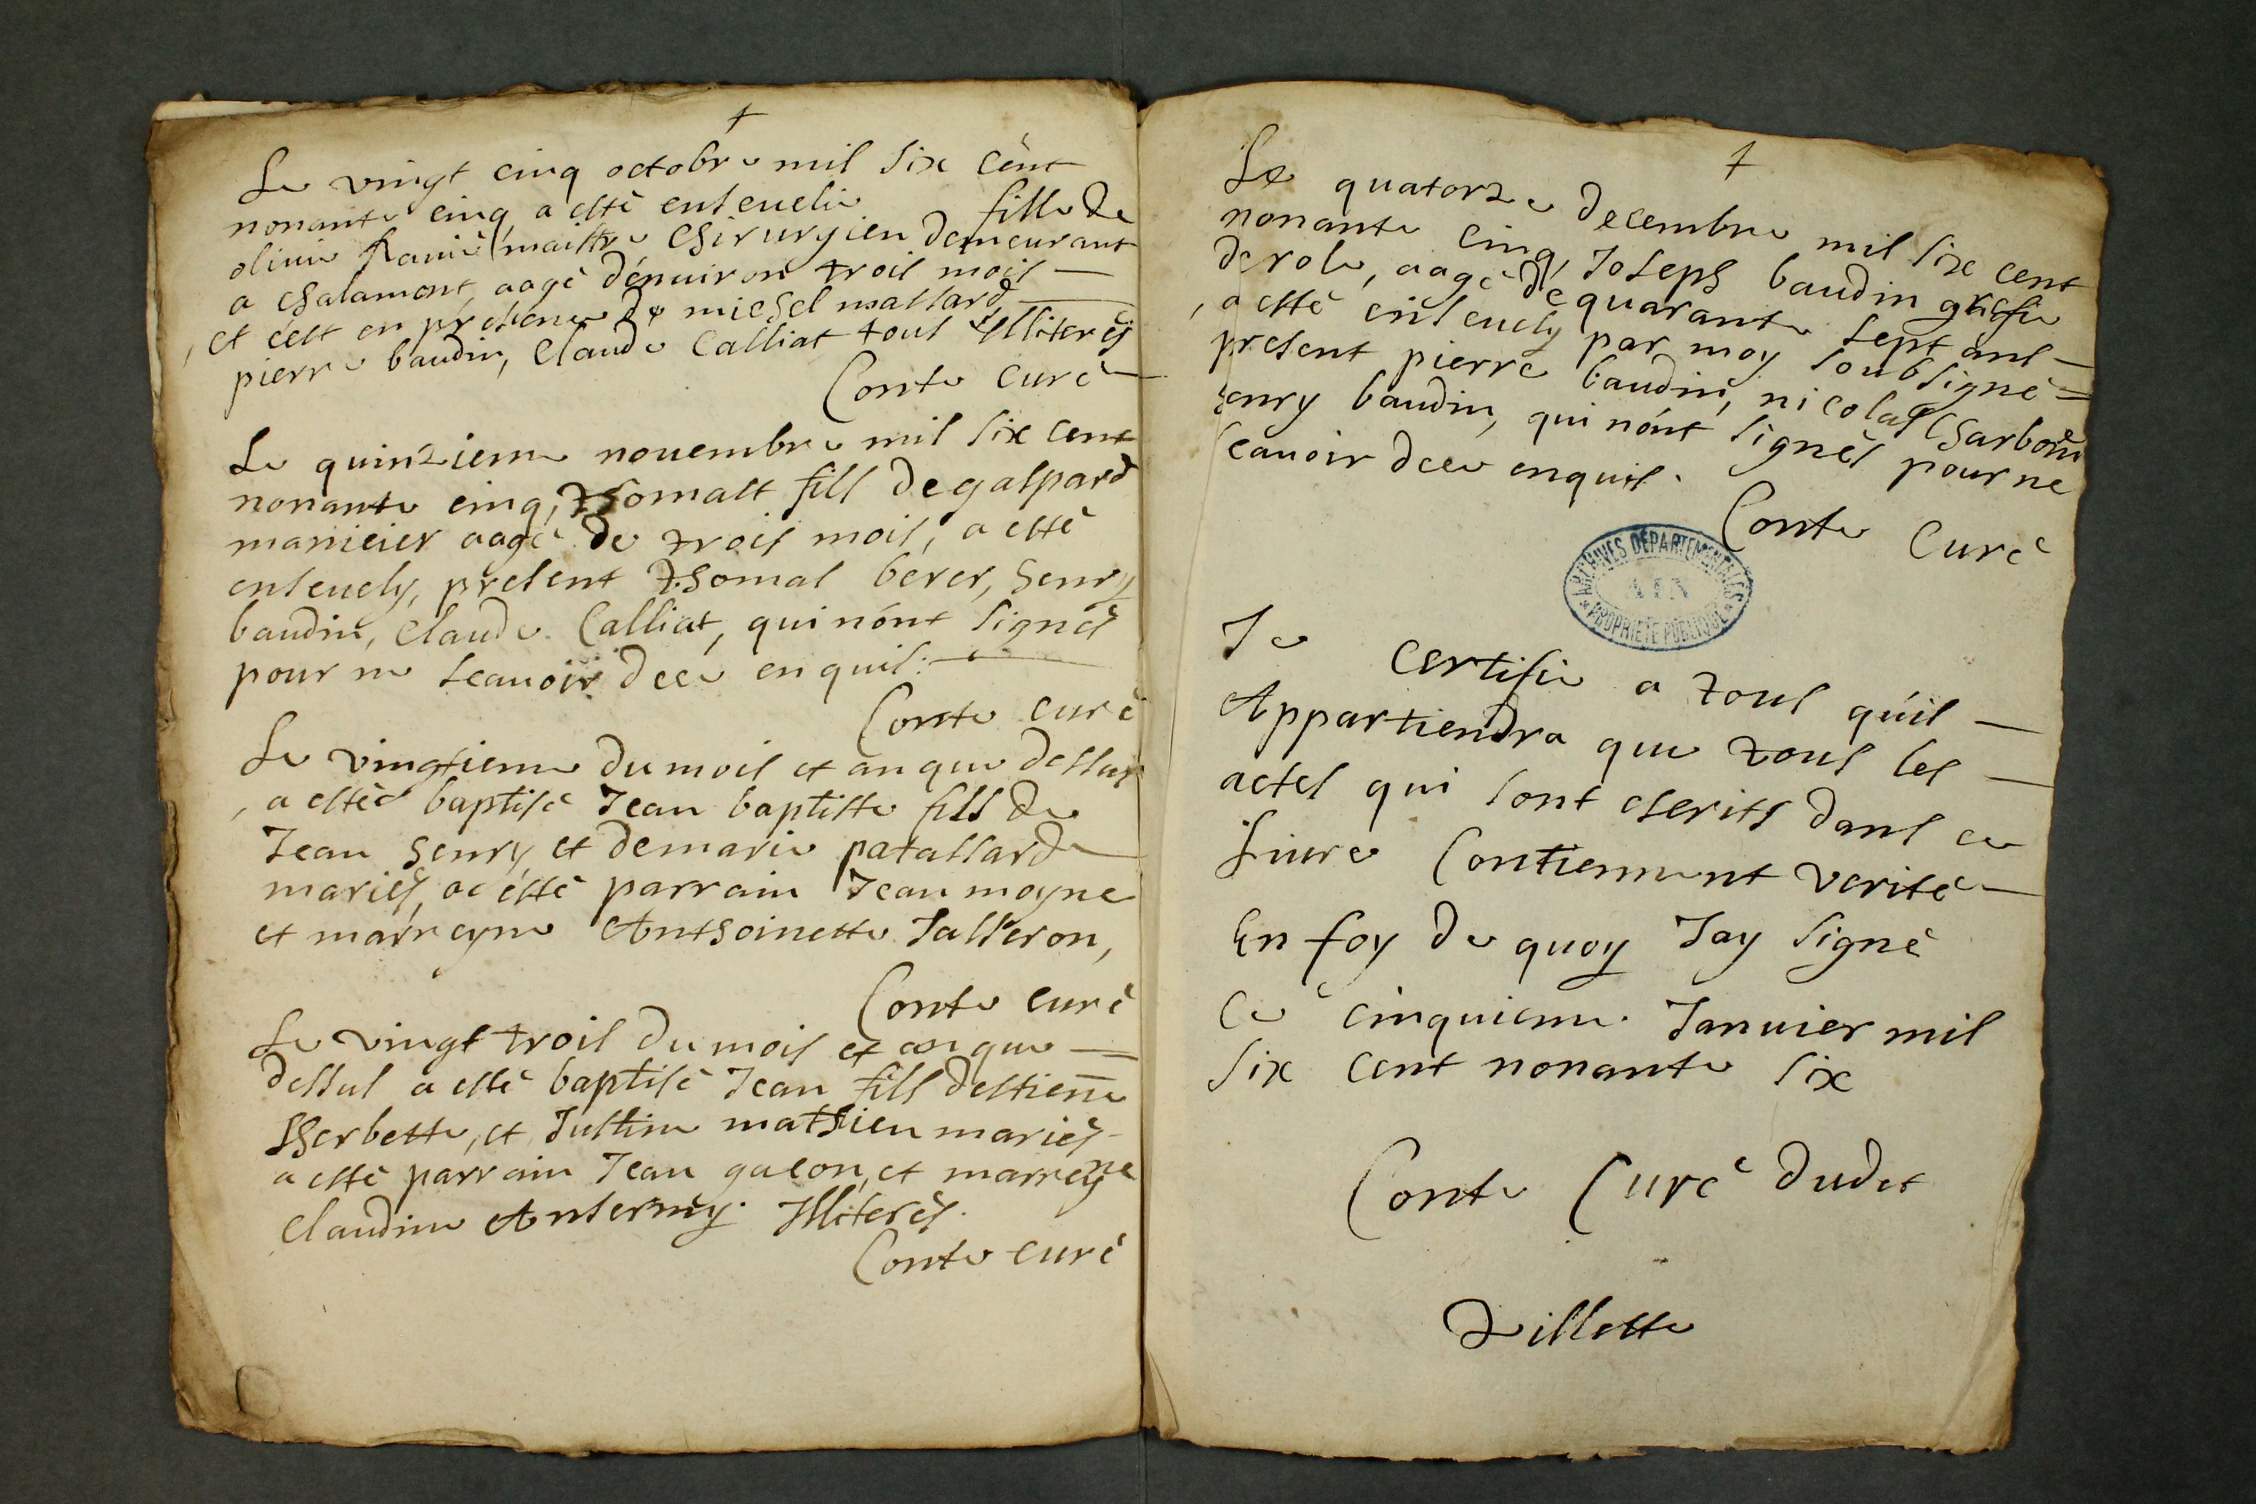 †
Le vingt cinq octobre mil six cent
nonante cinq a esté ensevelie fille de
olivie Ravié maistre chirurgien demeurant
a chalamont, aagé dénuiron trois mois
et cést en présence de michel mallard
pierre baudin, Claude Calliat tous Illiterés
Conte curé
Le quinzieme nouembre mil six cent
nonante cinq, Thomast fils de gaspard
manieier aagé de trois mois, a esté
enseuely, present Thomas berer, henry
baudin, Claude Calliat, qui nónt signés
pour ne scauoir de ce enquis.
Conte curé
Le vingtieme du mois et an que dessus
, a esté baptisé Jean baptiste fils de
Jean henry, et de marie patallard
mariés, a esté parrain Jean moyne
et marreyne Anthoinette Jalleron,
Conte curé
Le vingt trois du mois et an que
dessus a esté baptisé Jean fils destiene
herbette, et Justine mathieu mariés
a esté parrain Jean gucon, et marreyne
Claudine Anserméy. Illiterés.
Conte curé
†
Le quatorze decembre mil six cent
nonante cinq, Joseph baudin grefie
de role, aagé de quarante sept ans
, a esté enseuely par moy soubsigné
present pierre baudin, nicolas Charbon
henry baudin, qui nónt signés pour ne
scauoir de ce enquis.
Conte Curé
ARCHIVES DÉPARTEMENTALES
AIN
PROPRIÉTÉ PUBLIQUE
Je certifie a tous qúil
Appartiendra que tous les
actes qui sont escrits dans ce
Liure Contiennent verité
En foy de quoy Jay signé
Ce cinquieme Januier mil
six cent nonante six
Conte Curé dudit
Villette